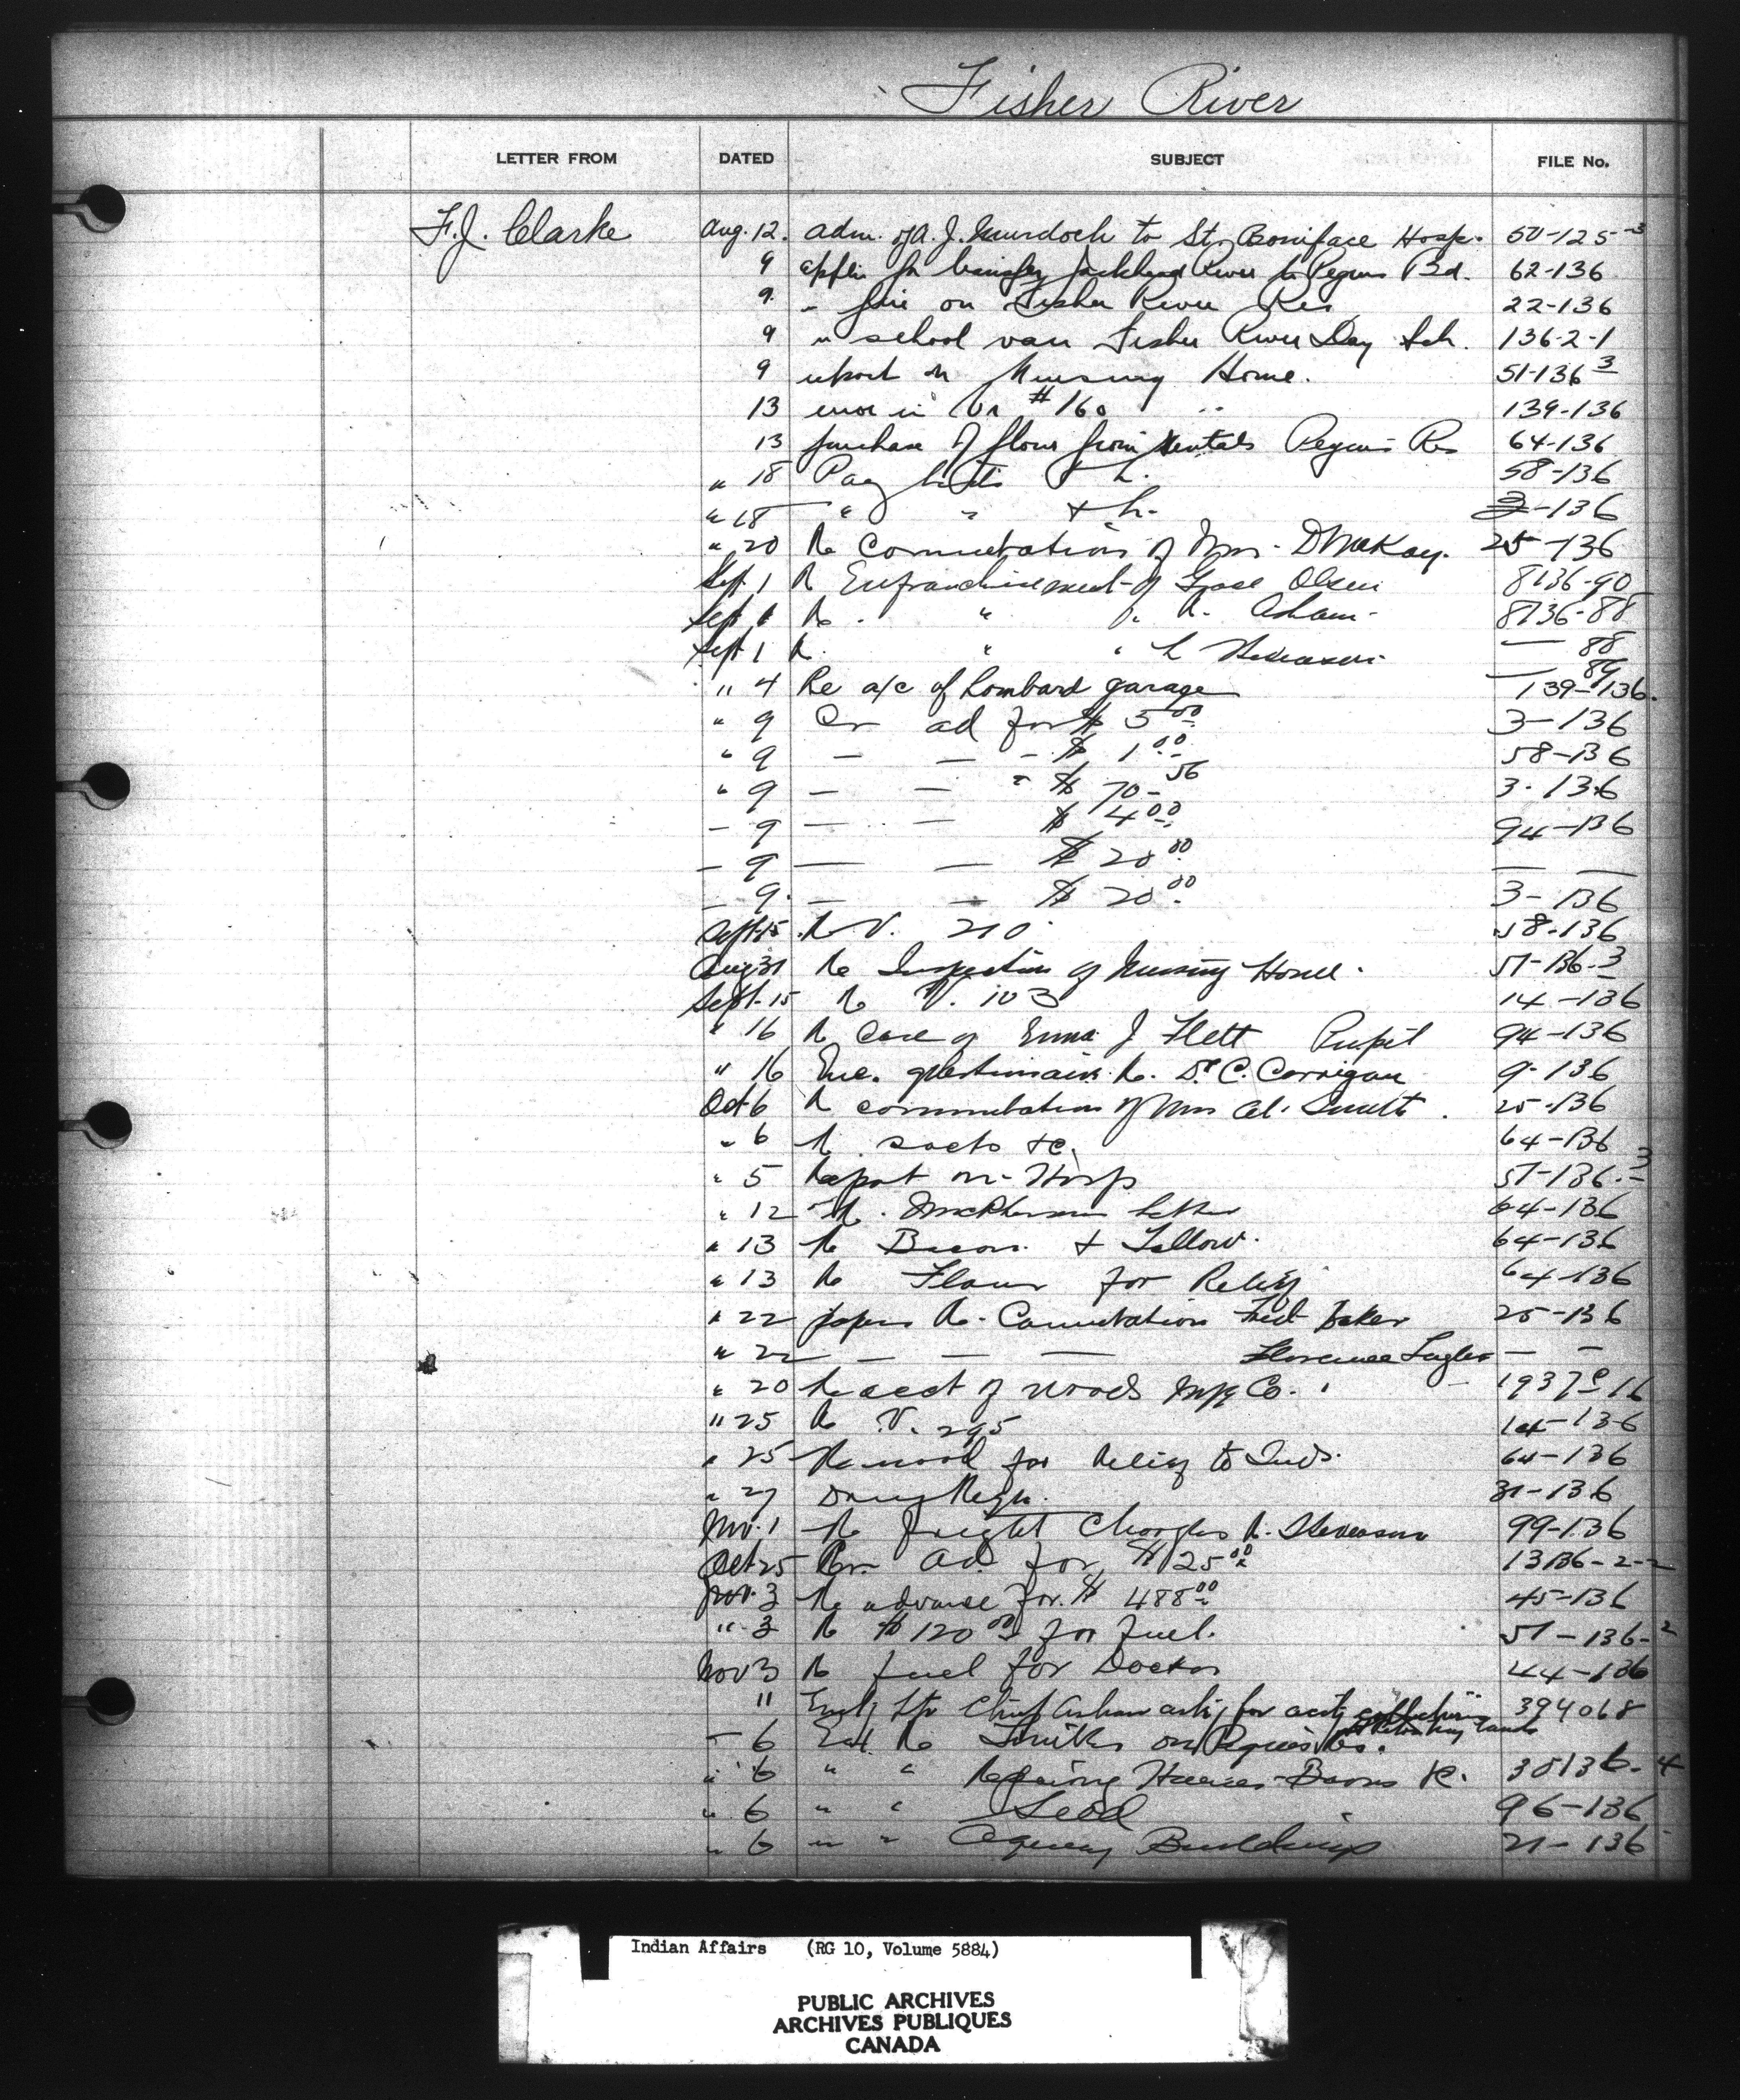 Fisher River
LETTER FROM DATED SUBJECT FILE No.
F.J. Clarke Aug. 12. adm. of A. J. Murdoch to St. Boniface Hosp. 50-125-3
9 applin for transfer Jackhead River to Peguis Bd. 62-136
9. " fire on Fisher River Res 22-136
9 " school van Fisher River Day Sch. 136-2-1
9 report on Nursing Home. 51-136 3
13 error in Vr #160 139-136
13 purchase of flour from Rentals Peguis Res 64-136
" 18 Pay lists 58-136
" 18 " " -136
" 20 Re Commutation of Mrs. D McKay. 25-136
Sept. 1 Re Enfranchisement of Olsen 8136-90
Sept 1 Re. " " R. Asham. 8136-88
Sept 1 R. " " — 88
" 4 Re a/c of Lombard garage — 89 139-136.
" 9 Cr ad for $ 5 00 3-136
" 9 — — - $ 1 00 58-136
" 9 — — " $ 70 56 3-136
- 9 — — $ 4 00 94-136
- 9 — — $ 20 00 — —
- 9. — — $ 20 00 3-136
Sept. 15 Re V. 210 58-136
Aug 31 Re Inspection of Nursing Home. 51-136-3
Sept. 15 Re V. 103 14-136
" 16 Re Case of Emma J Flett Pupil 94-136
" 16 Enc. questionair Re. Dr. C. Corrigan 9-136
Oct 6 Re commutation of Mrs Smith. 25-136
" 6 Re. sacks &c. 64-136
" 5 Report on Hosp 51-136-3
" 12 Re. McPherson letter 64-136
" 13 Re Bacon & Tallow. 64-136
" 13 Re Flour for Relief 64-136
" 22 papers Re. Commutation Fred Baker 25-136
" 22 — — — Florence — —
" 20 Re acct of Woods Mfg Co. 1937 16
" 25 Re V. 295 14-136
" 25 Re wood for Relief to Inds. 64-136
" 27 Drug Reqn. 31-136
Nov. 1 Re freight Charges R. Stevenson 99-136
Oct 25 Ad. for $125 00 13136-2-2
Nov. 3 Re advance for $ 488 00 45-136
" 3 Re $120 00 for fuel. 51-136-2
Nov 3 Re fuel for Doctor 44-136
" Encl; Ltr Chief Asham askg for 394068
- 6 Est. Re on Peguis Res.
" 6 " " Repairing Houses Barns &c. 30136-4
" 6 " " Seed 96-136
" 6 " " Agency Buildings 21-136
Indian Affairs (RG 10, Volume 5884)
PUBLIC ARCHIVES
ARCHIVES PUBLIQUES
CANADA